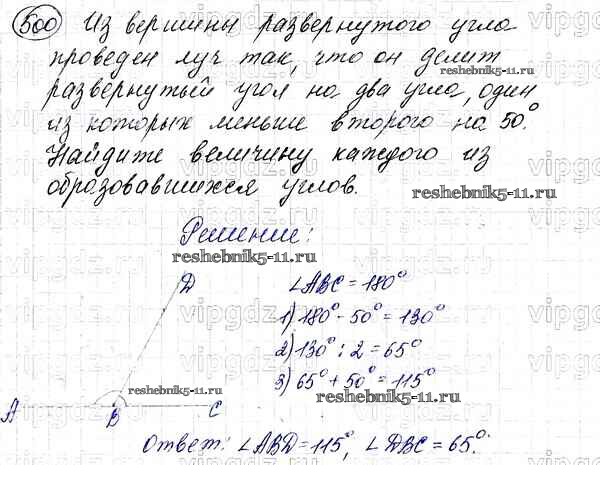 500 Из вершины развернутого угла
проведен луч так, что он делит
reshebnik5-11.ru
развернутый угол на два угла, один
из которых меньше второго на 50°.
Найдите величину каждого из
образовавшихся углов.
reshebnik5-11.ru
Решение:
reshebnik5-11.ru
D
∠ABC = 180°
1) 180° - 50° = 130°
2) 130° : 2 = 65°
3) 65° + 50° = 115°
reshebnik5-11.ru
reshebnik5-11.ru
A B C
Ответ: ∠ABD = 115°, ∠DBC = 65°.